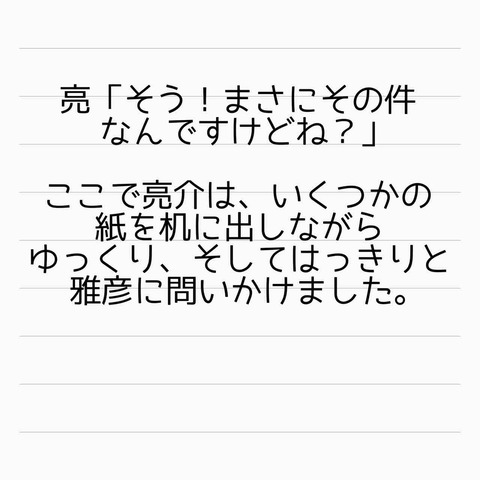 亮「そう！まさにその件
なんですけどね？」
ここで亮介は、いくつかの
紙を机に出しながら
ゆっくり、そしてはっきりと
雅彦に問いかけました。